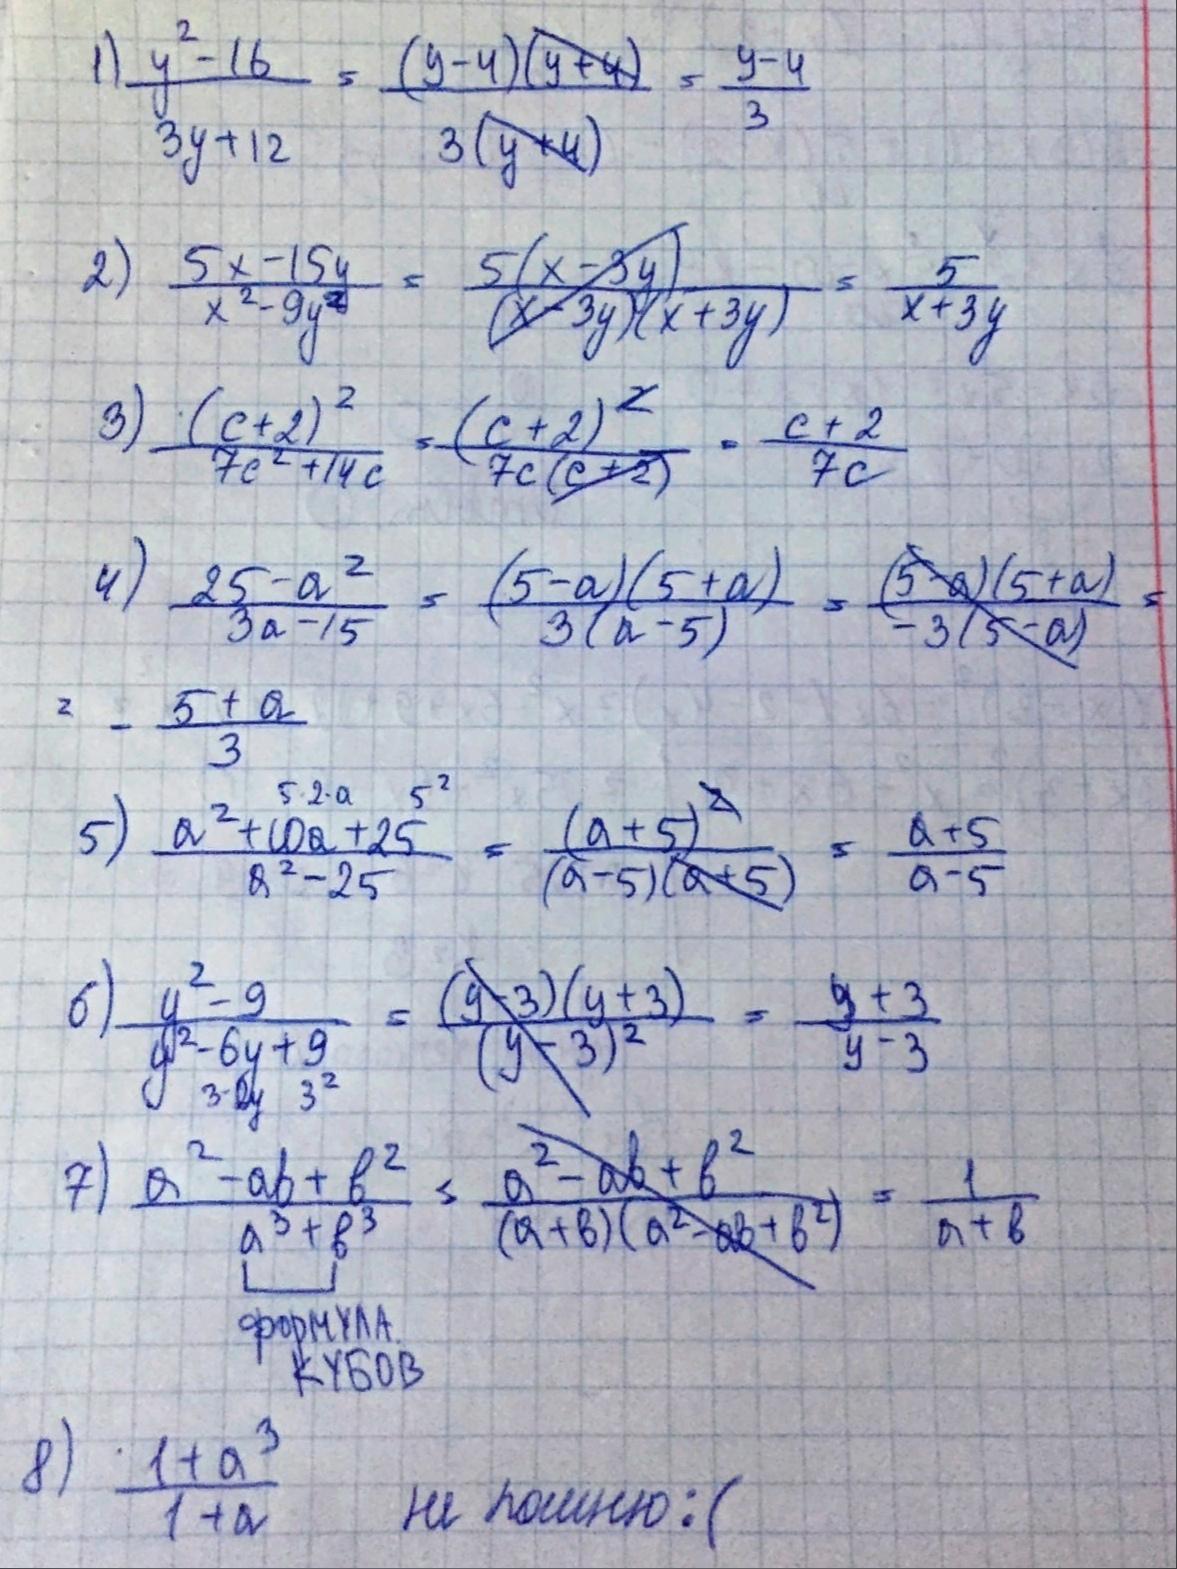 1) (y² - 16)/(3y + 12) = ((y - 4)(y + 4))/(3(y + 4)) = (y - 4)/3
2) (5x - 15y)/(x² - 9y²) = (5(x - 3y))/((x - 3y)(x + 3y)) = 5/(x + 3y)
3) (c + 2)²/(7c² + 14c) = (c + 2)²/(7c(c + 2)) = (c + 2)/(7c)
4) (25 - a²)/(3a - 15) = ((5 - a)(5 + a))/(3(a - 5)) = ((5 - a)(5 + a))/(-3(5 - a)) =
= - (5 + a)/3
5·2·a 5²
5) (a² + 10a + 25)/(a² - 25) = (a + 5)²/((a - 5)(a + 5)) = (a + 5)/(a - 5)
6) (y² - 9)/(y² - 6y + 9) = ((y - 3)(y + 3))/(y - 3)² = (y + 3)/(y - 3)
3·2y 3²
7) (a² - ab + b²)/(a³ + b³) = (a² - ab + b²)/((a + b)(a² - ab + b²)) = 1/(a + b)
формула
кубов
8) (1 + a³)/(1 + a) не помню :(